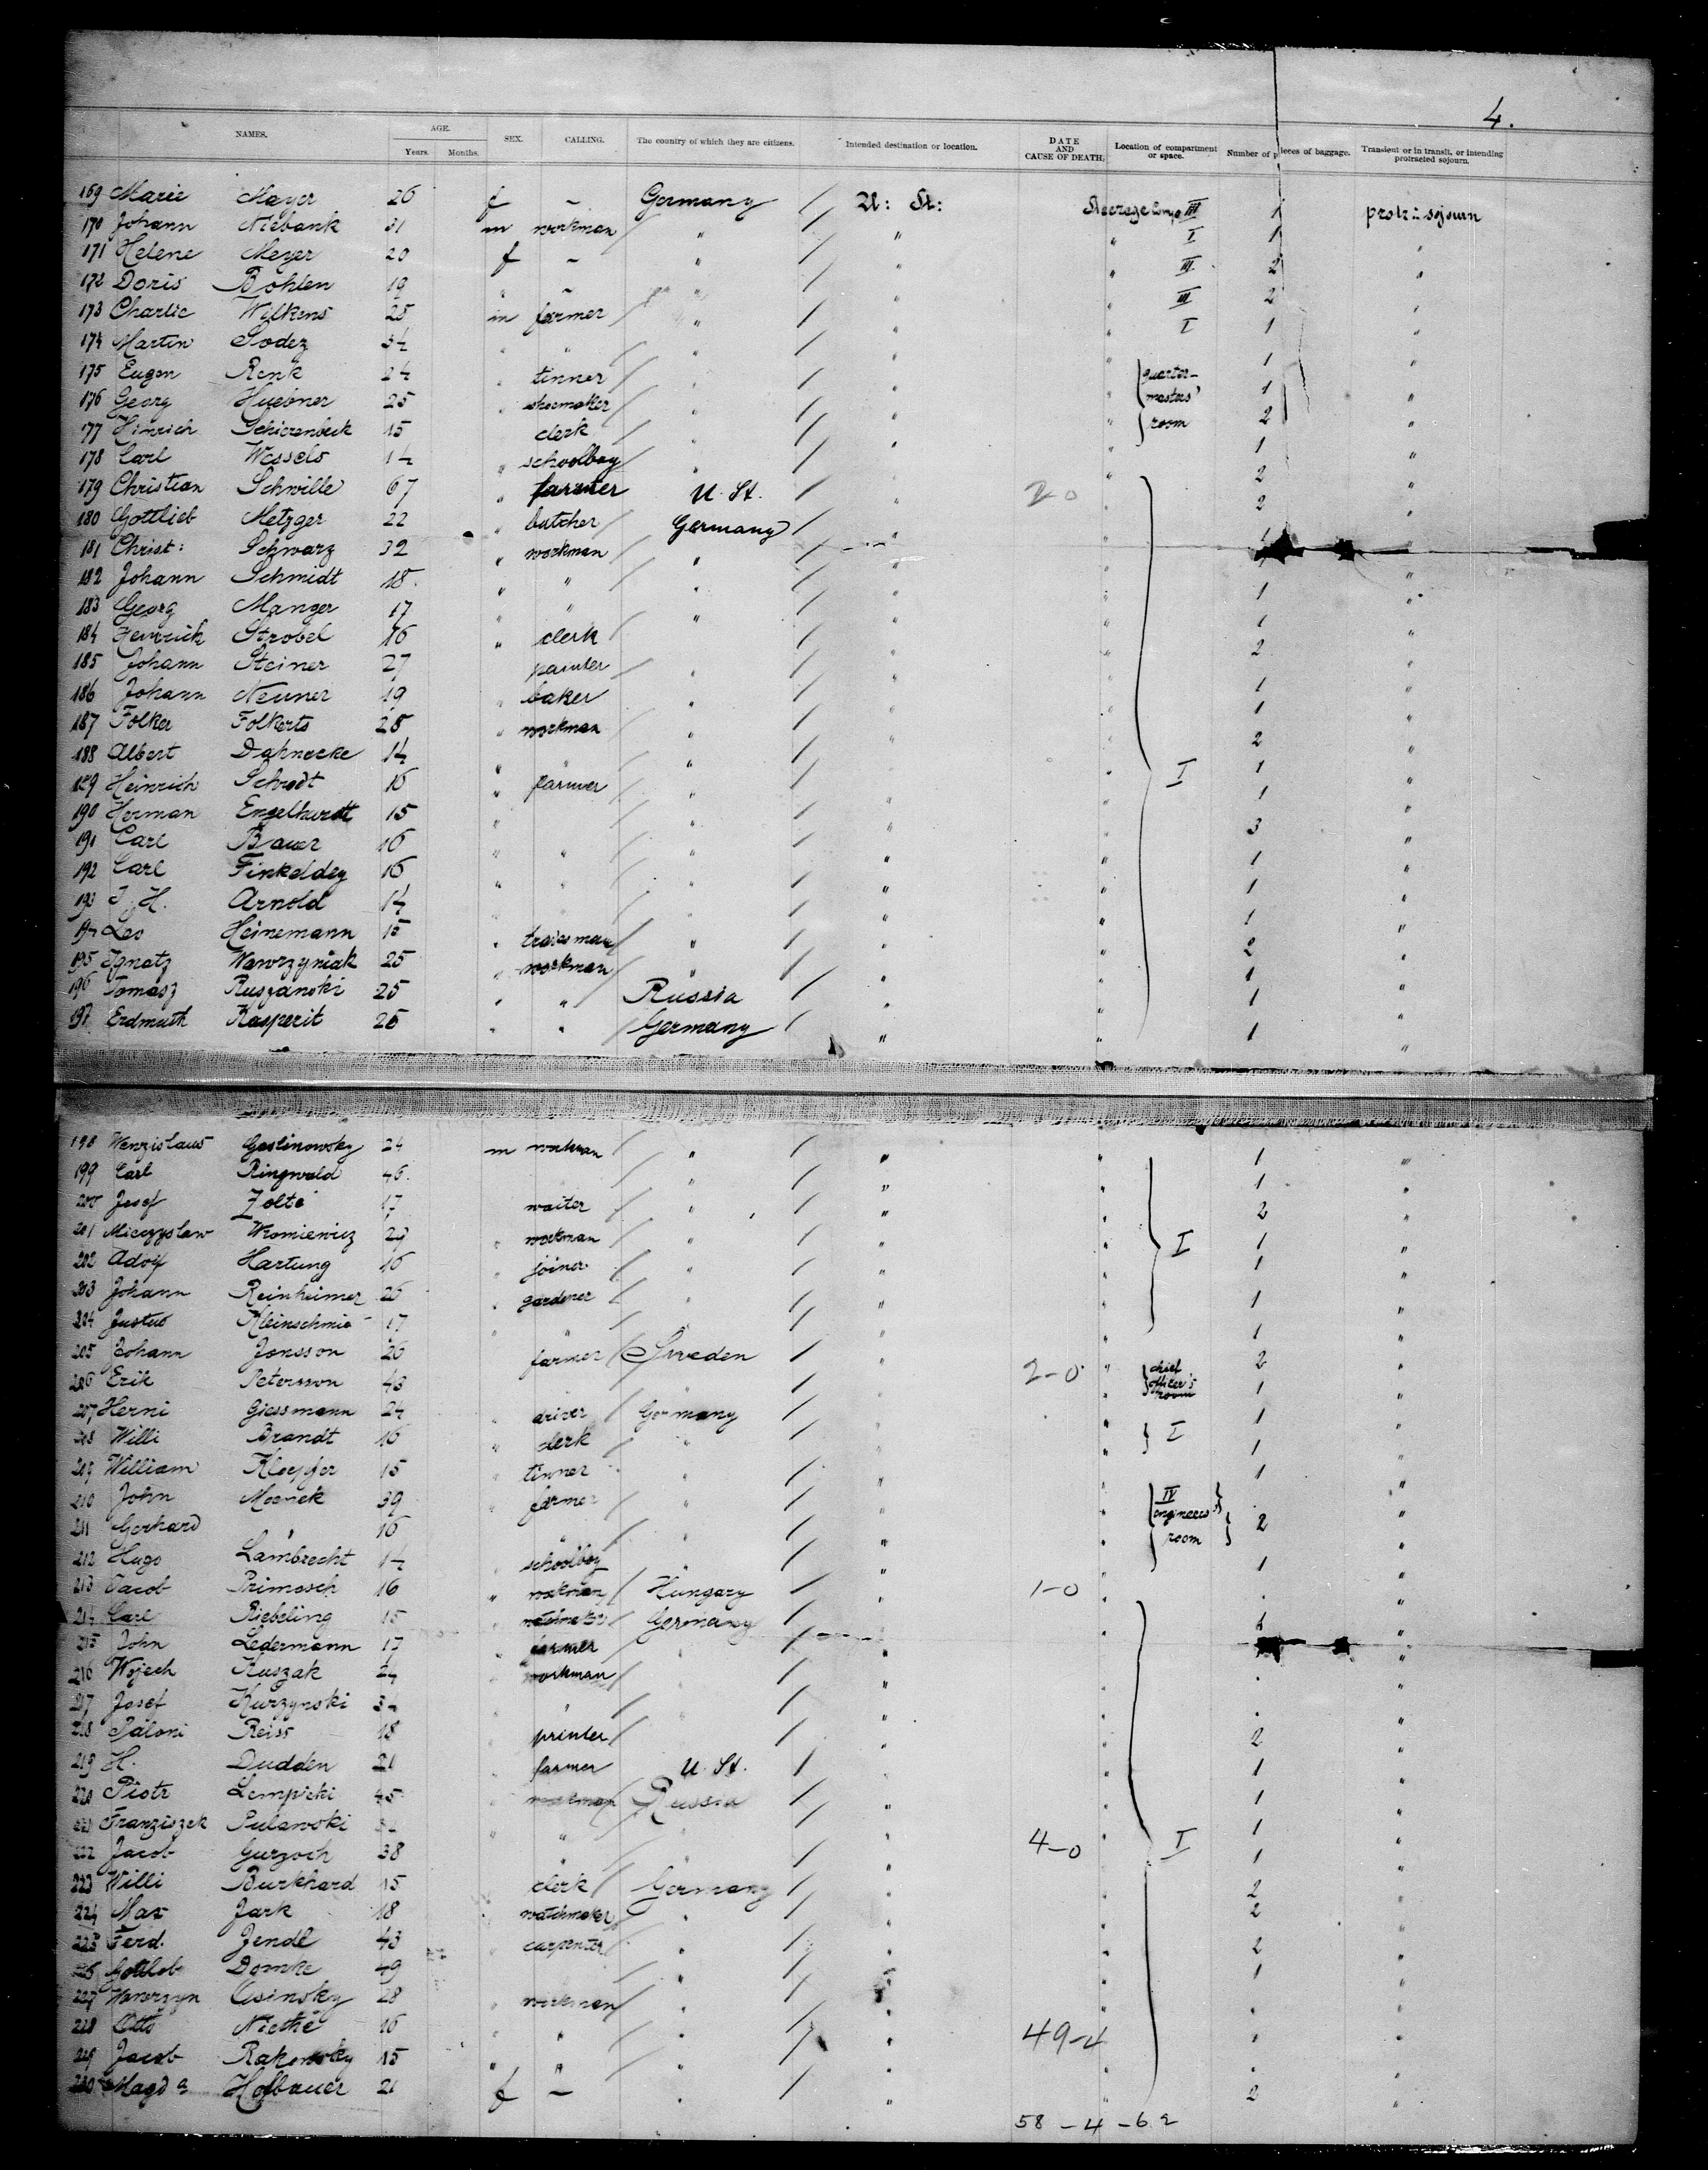 4.
NAMES. AGE. Years. Months. SEX. CALLING. The country of which they are citizens. Intended destination or location. DATE AND CAUSE OF DEATH. Location of compartment or space. Number of pieces of baggage. Transient or in transit, or intending protracted sojourn.
169 Marie Mayer 26 f – Germany / U: St: Steerage Comp III 1 protr: sojourn
170 Johann Niebank 31 m workman / " / " " I 1 "
171 Helene Meyer 20 f – " / " " III 2 "
172 Doris Bohlen 19 " – " / " " III 2 "
173 Charlie Wilkens 25 m farmer / " / " " I 1 "
174 Martin Sodez 34 " " / " / " " 1 "
175 Eugen Renk 24 " tinner / " / " " quarter- 1 "
176 Georg Huebner 25 " shoemaker / " / " " masters' 2 "
177 Hinrich Schierenbeck 15 " clerk / " / " " room 1 "
178 Carl Wessels 14 " schoolboy / " / " " 2 "
179 Christian Schwille 67 " farmer U. St. / " 2-0 " 2 "
180 Gottlieb Metzger 22 " butcher / Germany / " " "
181 Christ: Schwarz 32 " workman / " / " " "
182 Johann Schmidt 18 " " / " / " " 1 "
183 Georg Manger 17 " " / " / " " 1 "
184 Heinrich Strobel 16 " clerk / " / " " 2 "
185 Johann Steiner 27 " painter / " / " " 1 "
186 Johann Neuner 19 " baker / " / " " 1 "
187 Folker Folkerts 28 " workman / " / " " 2 "
188 Albert Dahnecke 14 " " / " / " " I 1 "
189 Heinrich Schrodt 16 " farmer / " / " " 1 "
190 Herman Engelhardt 15 " " / " / " " 3 "
191 Carl Bauer 16 " " / " / " " 1 "
192 Carl Finkeldey 16 " " / " / " " 1 "
193 J. H. Arnold 14 " " / " / " " 1 "
194 Leo Heinemann 15 " tradesman / " / " " 2 "
195 Ignatz Wawrzyniak 25 " workman / " / " " 1 "
196 Tomasz Ruszanski 25 " " / Russia / " " 1 "
197 Erdmuth Kasperit 26 " " / Germany / " " 1 "
198 Wenzislaus Goslinowsky 24 m workman / " / " " 1 "
199 Carl Ringwald 46 / " / " " 1 "
200 Josef Zolte 17 waiter / " / " " 2 "
201 Mieczyslaw Wromiewicz 29 workman / " / " " I 1 "
202 Adolf Hartung 16 " joiner / " / " " 1 "
203 Johann Reinheimer 26 " gardener / " / " " 1 "
204 Justus Kleinschmie 17 " " / " / " " 1 "
205 Johann Jonsson 26 farmer / Sweden / " 2-0 " chief 2 "
206 Erik Petersson 43 " / " officer's room 1 "
207 Herni Giessmann 24 " driver / Germany / " " I 1 "
208 Willi Brandt 16 " clerk / " / " " 1 "
209 William Kloepfer 15 " tinner " / " " 1 "
210 John 39 " farmer " / " " IV engineers' 2 "
211 Gerhard " 16 " / " / " " room "
212 Hugo Lambrecht 14 schoolboy / " / " " 1 "
213 Jacob Primosch 16 " workman / Hungary / " 1-0 " "
214 Carl Riebeling 15 " / Germany / " " 1 "
215 John Ledermann 17 " farmer / " / " " "
216 Wojech Kuszak 24 " workman / " / " " "
217 Josef Kurzynski 34 " " / " / " " "
218 Reiss 18 printer / / " " 2 "
219 H. Dudden 21 farmer U. St. / " " 1 "
220 Piotr Lempicki 45 " workman / Russia / " " 1 "
221 Franziszek Pulawski 32 " " / " / " " 1 "
222 Jacob Gurzoch 38 " / " / " 4-0 " I 1 "
223 Willi Burkhard 15 clerk / Germany / " " 2 "
224 Max Jark 18 " watchmaker / " / " " 2 "
225 Ferd. Jendl 43 " carpenter / " / " " 2 "
226 Gottlieb Domke 49 / " / " " 1 "
227 Wawrzyn Osinsky 28 " workman / " / " " "
228 Otto Niethe 16 " " / " / " 49-4 " "
229 Jacob Rakowsky 15 " " / " / " " "
230 Magda Hofbauer 21 f – " / " " 2 "
58 - 4 - 62